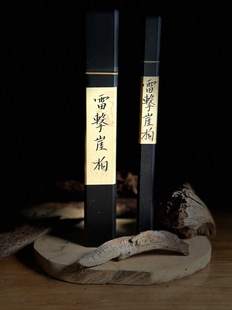 雷擊崖柏
雷擊崖柏